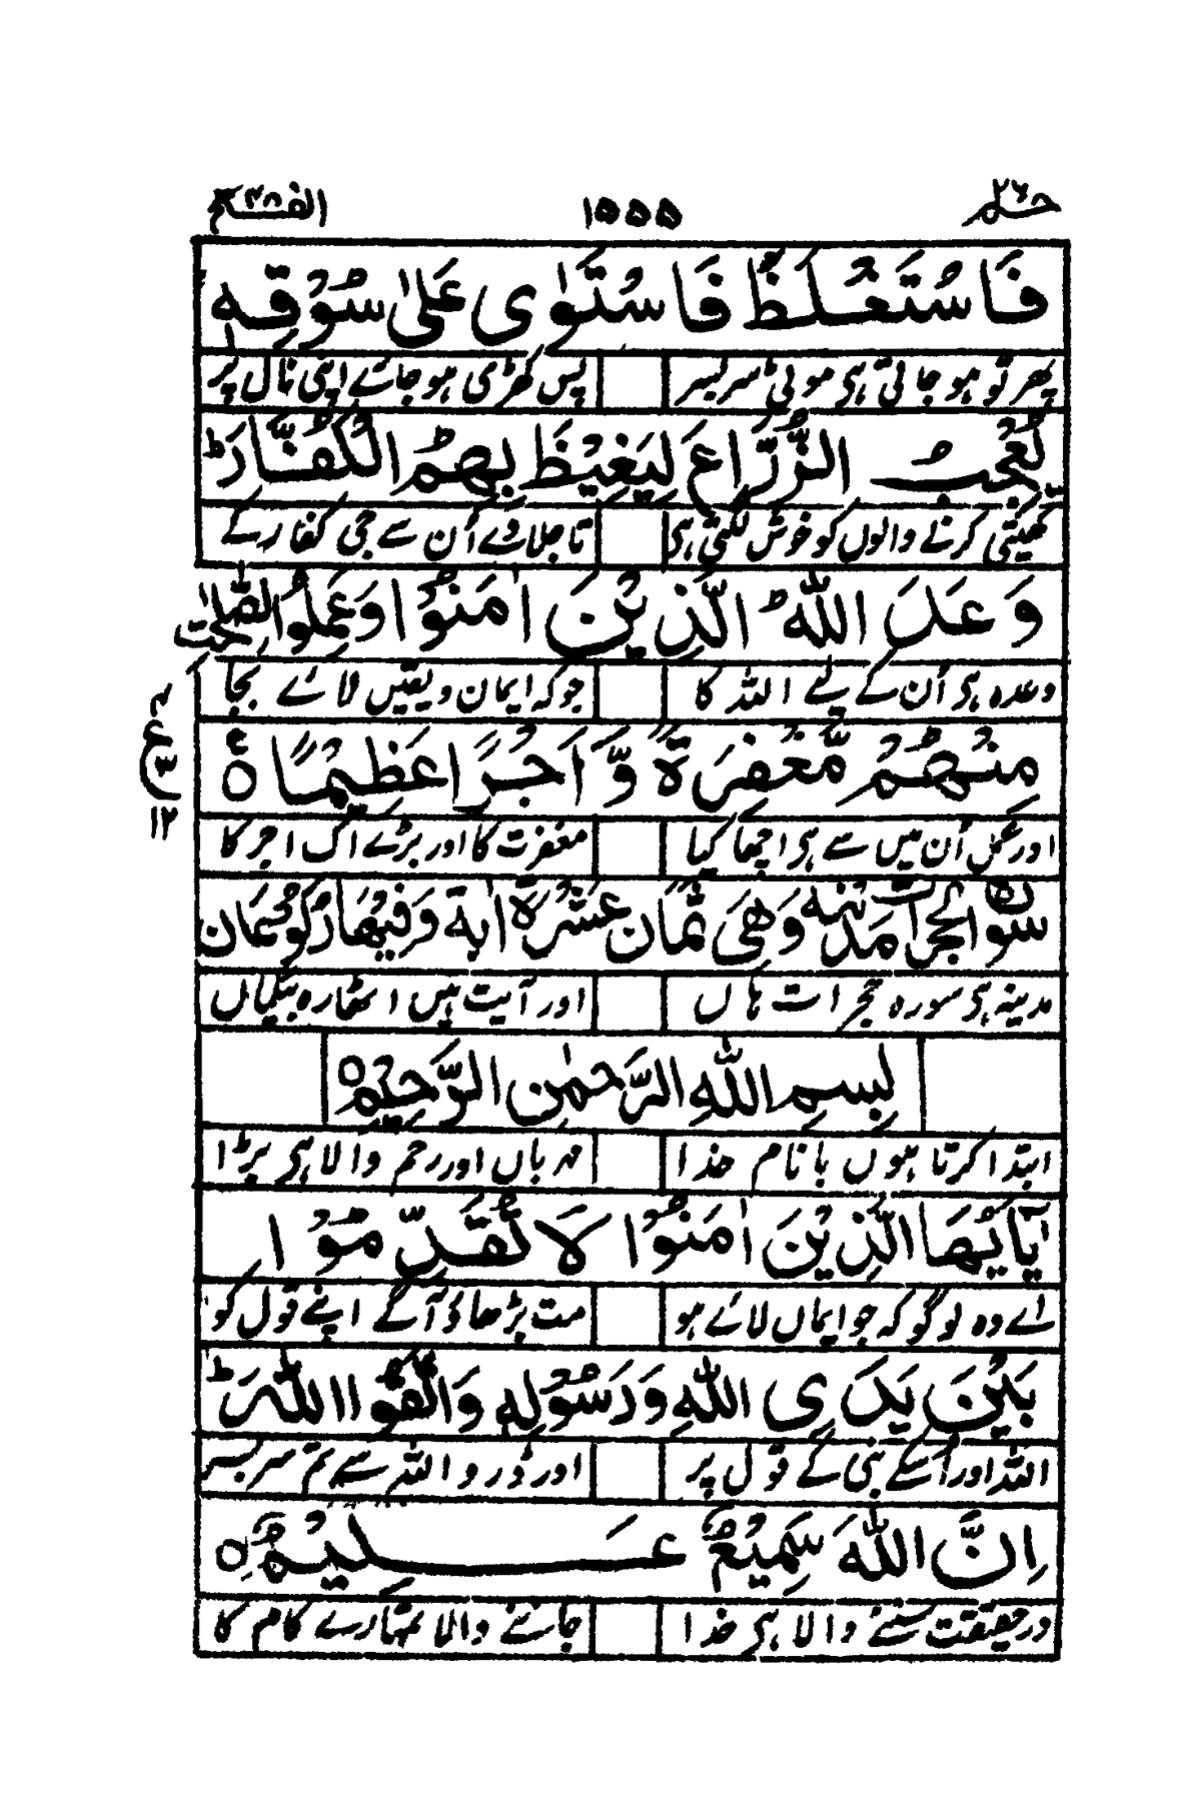 حٰم ۲۶ ۱۵۵۵ الفتح ۴۸
فَاسْتَغْلَظَ فَاسْتَوٰى عَلٰى سُوْقِهٖ
پھر تو ہو جاتی ہی موٹی سربسر پس کھڑی ہو جائے اپنی نال پر
يُعْجِبُ الزُّرَّاعَ لِيَغِيْظَ بِهِمُ الْكُفَّارَ ؕ
کھیتی کرنے والوں کو خوش لگتی ہی تا جلاوے اُن سے جی کفار کے
وَعَدَ اللّٰهُ الَّذِيْنَ اٰمَنُوْا وَعَمِلُوا الصّٰلِحٰتِ
وعدہ ہی اُن کے لیے اللہ کا جو کہ ایمان و یقیں لائے بجا
مِنْهُمْ مَّغْفِرَةً وَّ اَجْرًا عَظِيْمًا ۝
ع ۴ ۳ ۱۲
اور عمل اُن میں سے ہی اچھا کیا مغفرت کا اور بڑے اک اجر کا
سورة الحجرات مدنية وهي ثمان عشرة اٰية وفيها ركوعان
مدینہ ہی سورہ حجرات ہاں اور آیت ہیں اٹھارہ بیگماں
بِسْمِ اللّٰهِ الرَّحْمٰنِ الرَّحِيْمِ ۝
ابتدا کرتا ہوں با نام خدا مہرباں اور رحم والا ہی بڑا
يٰۤاَيُّهَا الَّذِيْنَ اٰمَنُوْا لَا تُقَدِّمُوْا
اے وہ لوگو کہ جو ایماں لائے ہو مت بڑھاؤ آگے اپنے قول کو
بَيْنَ يَدَىِ اللّٰهِ وَرَسُوْلِهٖ وَاتَّقُوا اللّٰهَ ؕ
اللہ اور اُسکے نبی کے قول پر اور ڈرو اللہ سے تم سربسر
اِنَّ اللّٰهَ سَمِيْعٌ عَلِيْمٌ ۝
در حقیقت سننے والا ہی خدا جاننے والا تمہارے کام کا